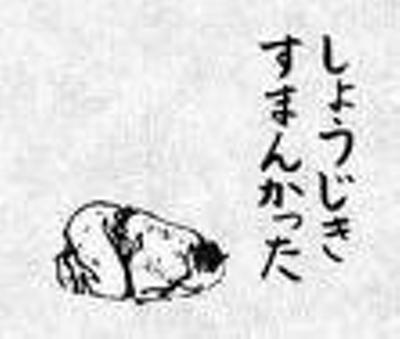 しょうじき
すまんかった